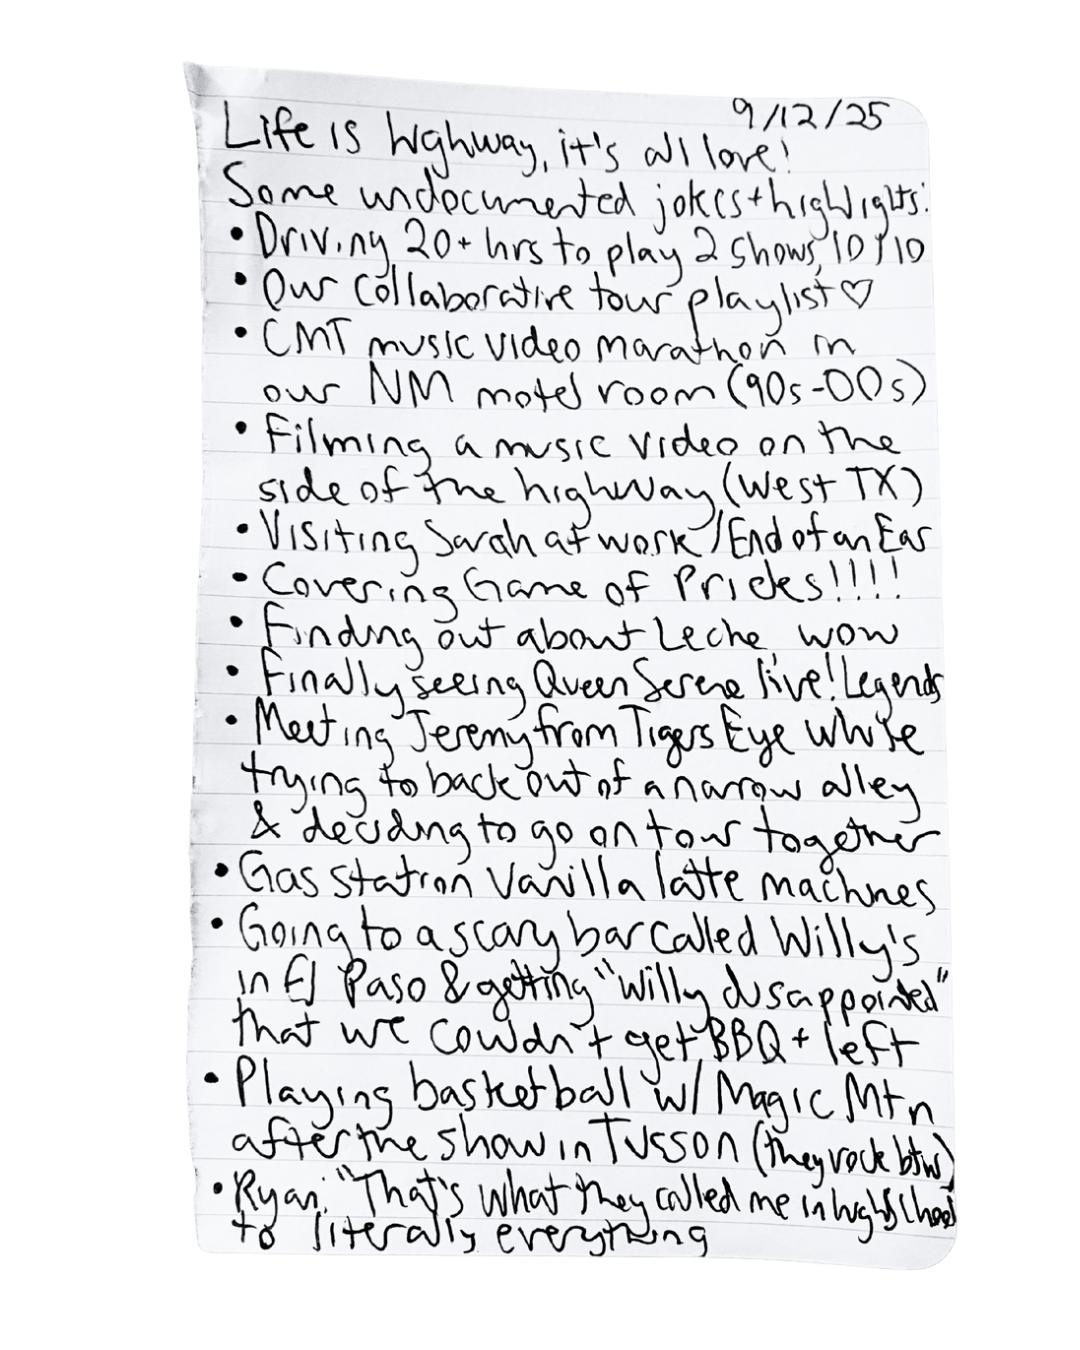 9/12/25
Life is highway, it's all love!
Some undocumented jokes + highlights:
• Driving 20+ hrs to play 2 shows, 10/10
• Our collaborative tour playlist ♡
• CMT music video marathon in
our NM motel room (90s-00s)
• Filming a music video on the
side of the highway (West TX)
• Visiting Sarah at work / End of an Ear
• Covering Game of Pricks!!!!
• Finding out about Leche, wow
• Finally seeing Queen Serene live! Legends
• Meeting Jeremy from Tigers Eye while
trying to back out of a narrow alley
& deciding to go on tour together
• Gas station vanilla latte machines
• Going to a scary bar called Willy's
in El Paso & getting "willy disappointed"
that we couldn't get BBQ + left
• Playing basketball w/ Magic Mtn
after the show in Tusson (they rock btw)
• Ryan: "That's what they called me in high school
to literally everything